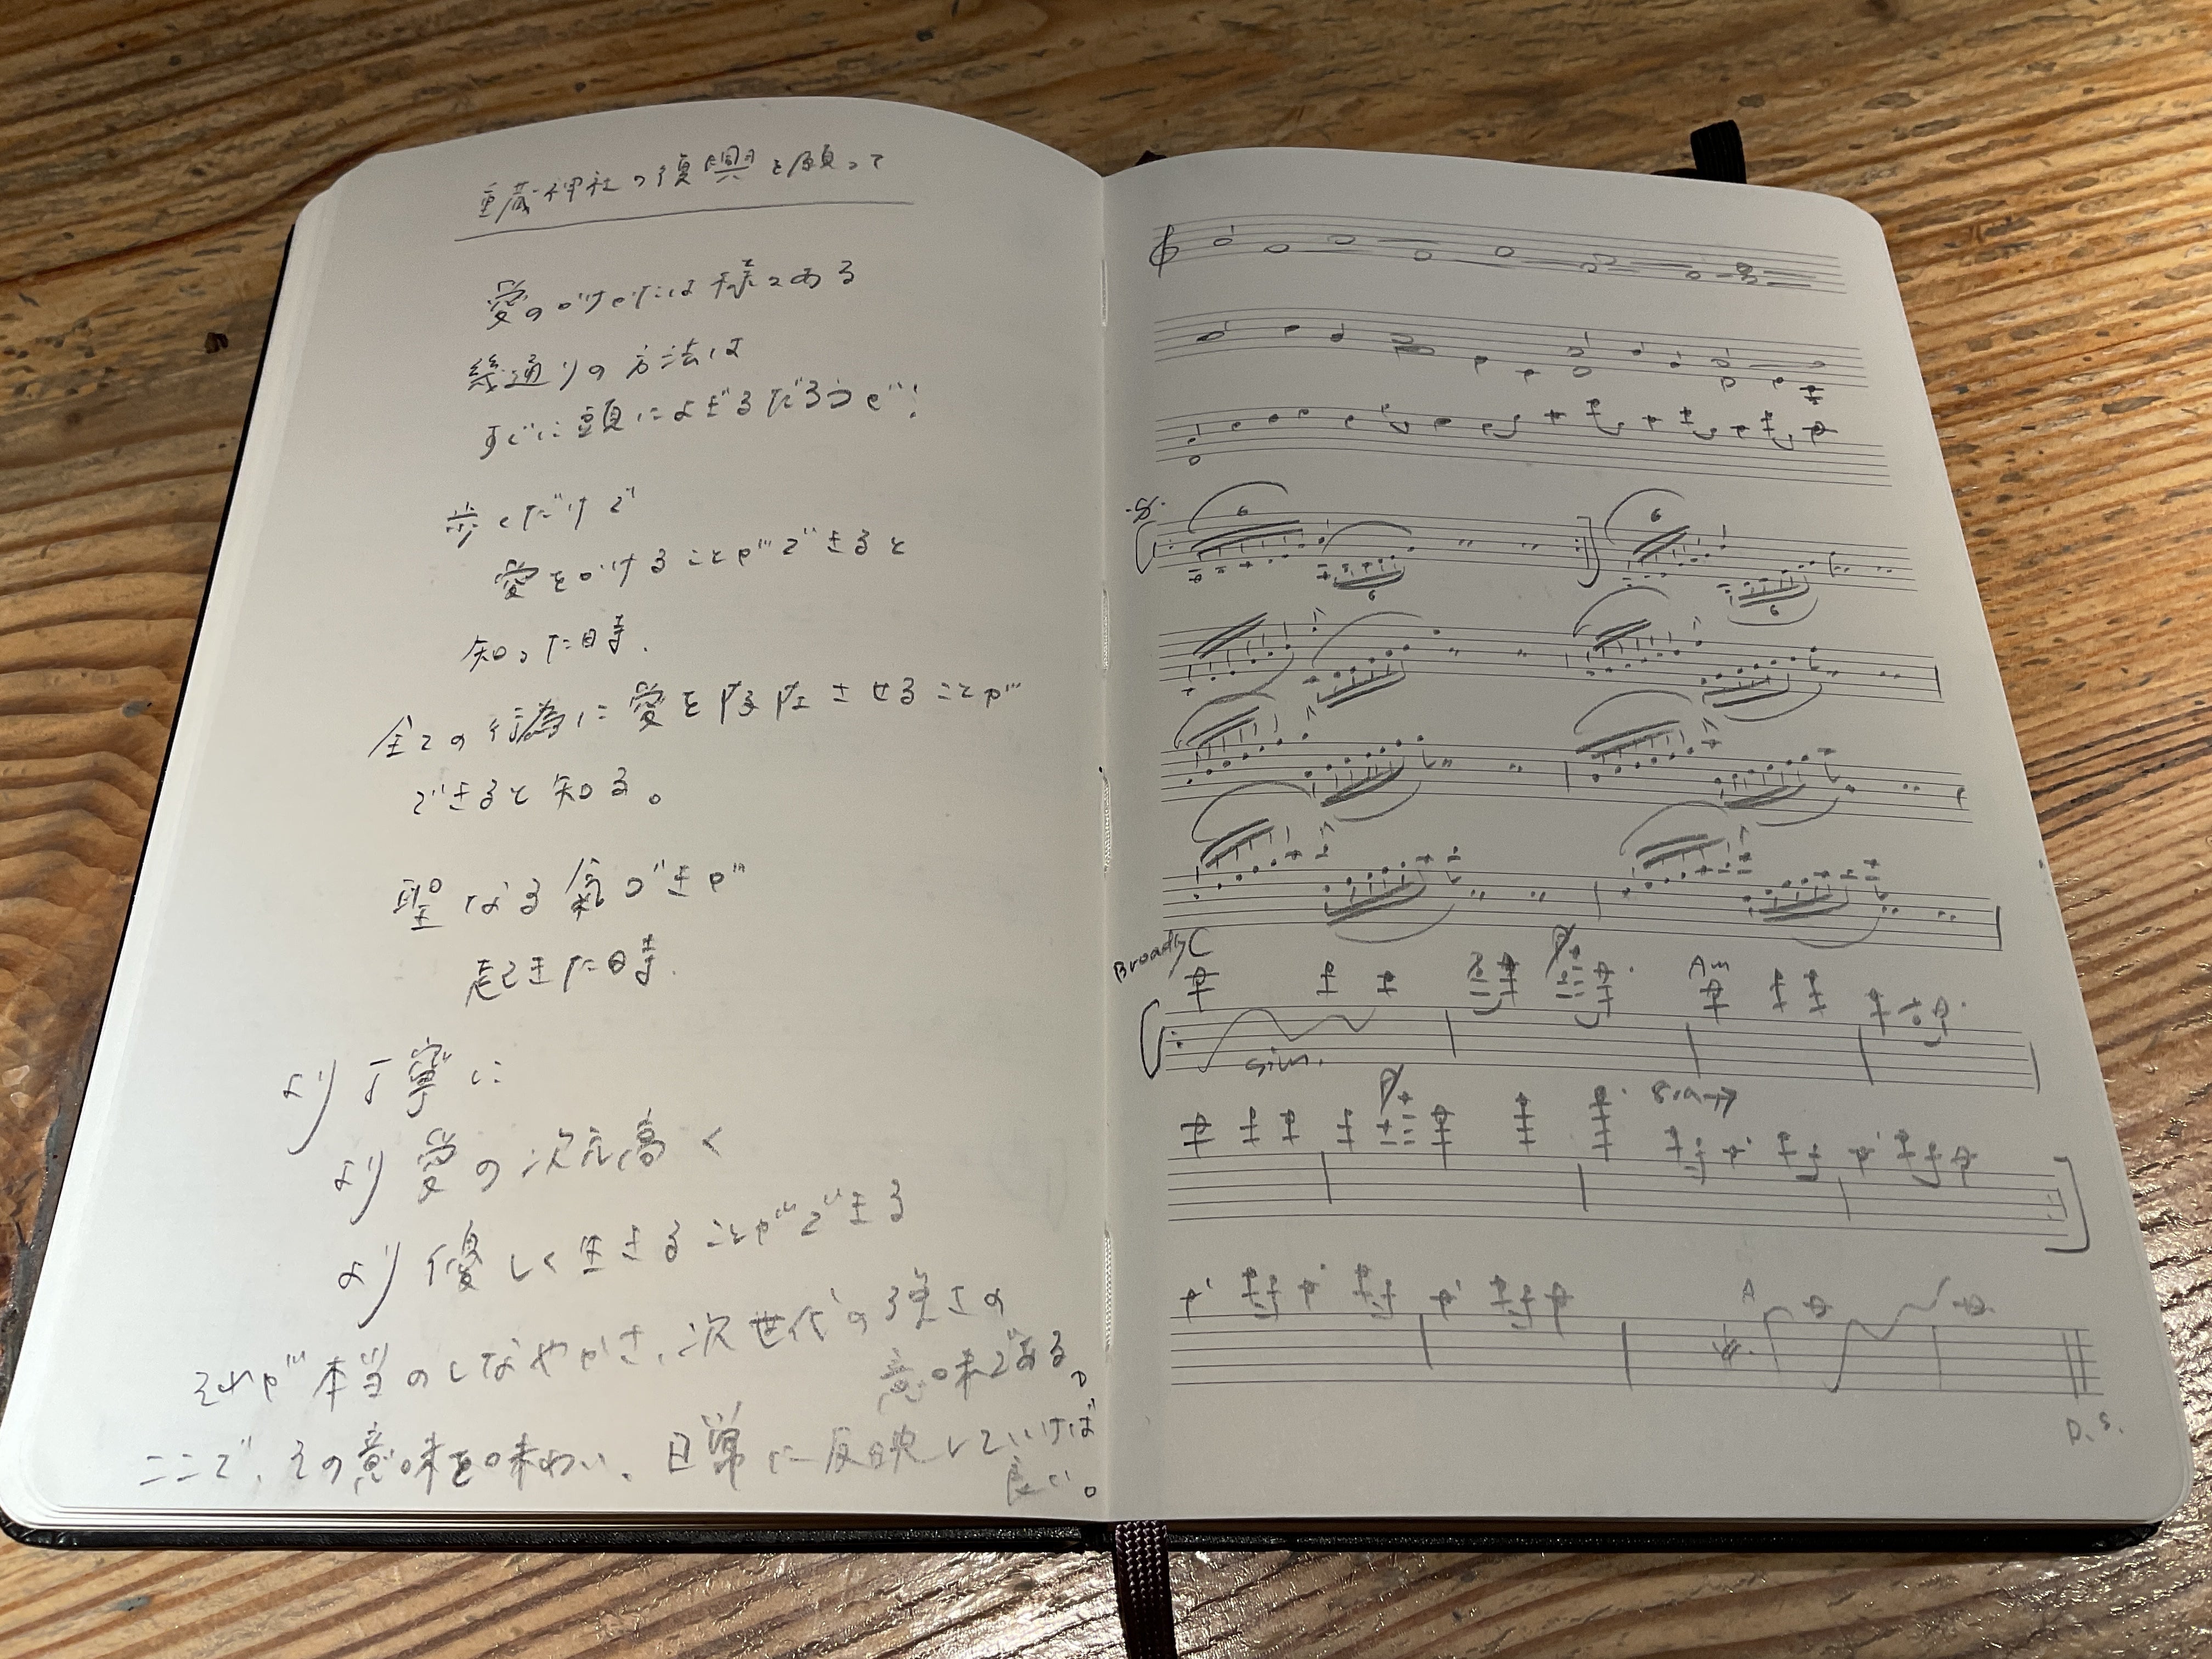 重蔵神社の復興を願って
愛のかけかたは様々ある
幾通りの方法は
すぐに頭によぎるだろうが!
歩くだけで
愛をかけることができると
知った時.
全ての行為に愛を降ろさせることが
できると知る。
聖なる氣づきが
起きた時.
より丁寧に
より愛の次元高く
より優しく生きることができる
それが本当のしなやかさ、次世代の強さの
意味である。
ここで、その意味を味わい、日常に反映していけば
良い。
6
6
6
6
Broadly
Am
sim.
8va→
A
D.S.